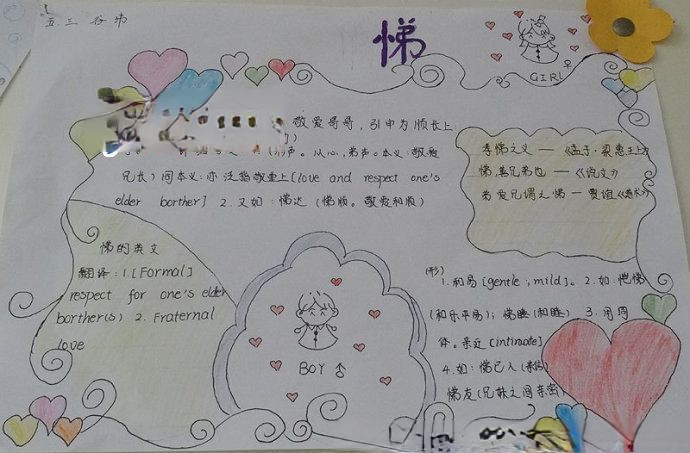 五.三 谷帅
悌
GIRL ♀
敬爱哥哥，引申为顺长上
声。从心，弟声。本义：敬爱
兄长) 同本义：亦泛指敬重上[love and respect one's
elder borther] 2.又如：悌达 (悌顺。敬爱和顺)
孝悌之义 — 《孟子·梁惠王上》
悌，善兄弟也 — 《说文》
弟爱兄谓之悌 — 贾谊
悌的英文
翻译：1.[Formal]
respect for one's elder
borther(s) 2. Fraternal
love
BOY ♂
(形)
1.和易[gentle；mild]。2.如：恺悌
(和乐平易)；悌睦(和睦) 3.用同
体。亲近[intimate]
4.如：悌己人
悌友(兄弟之间亲密)